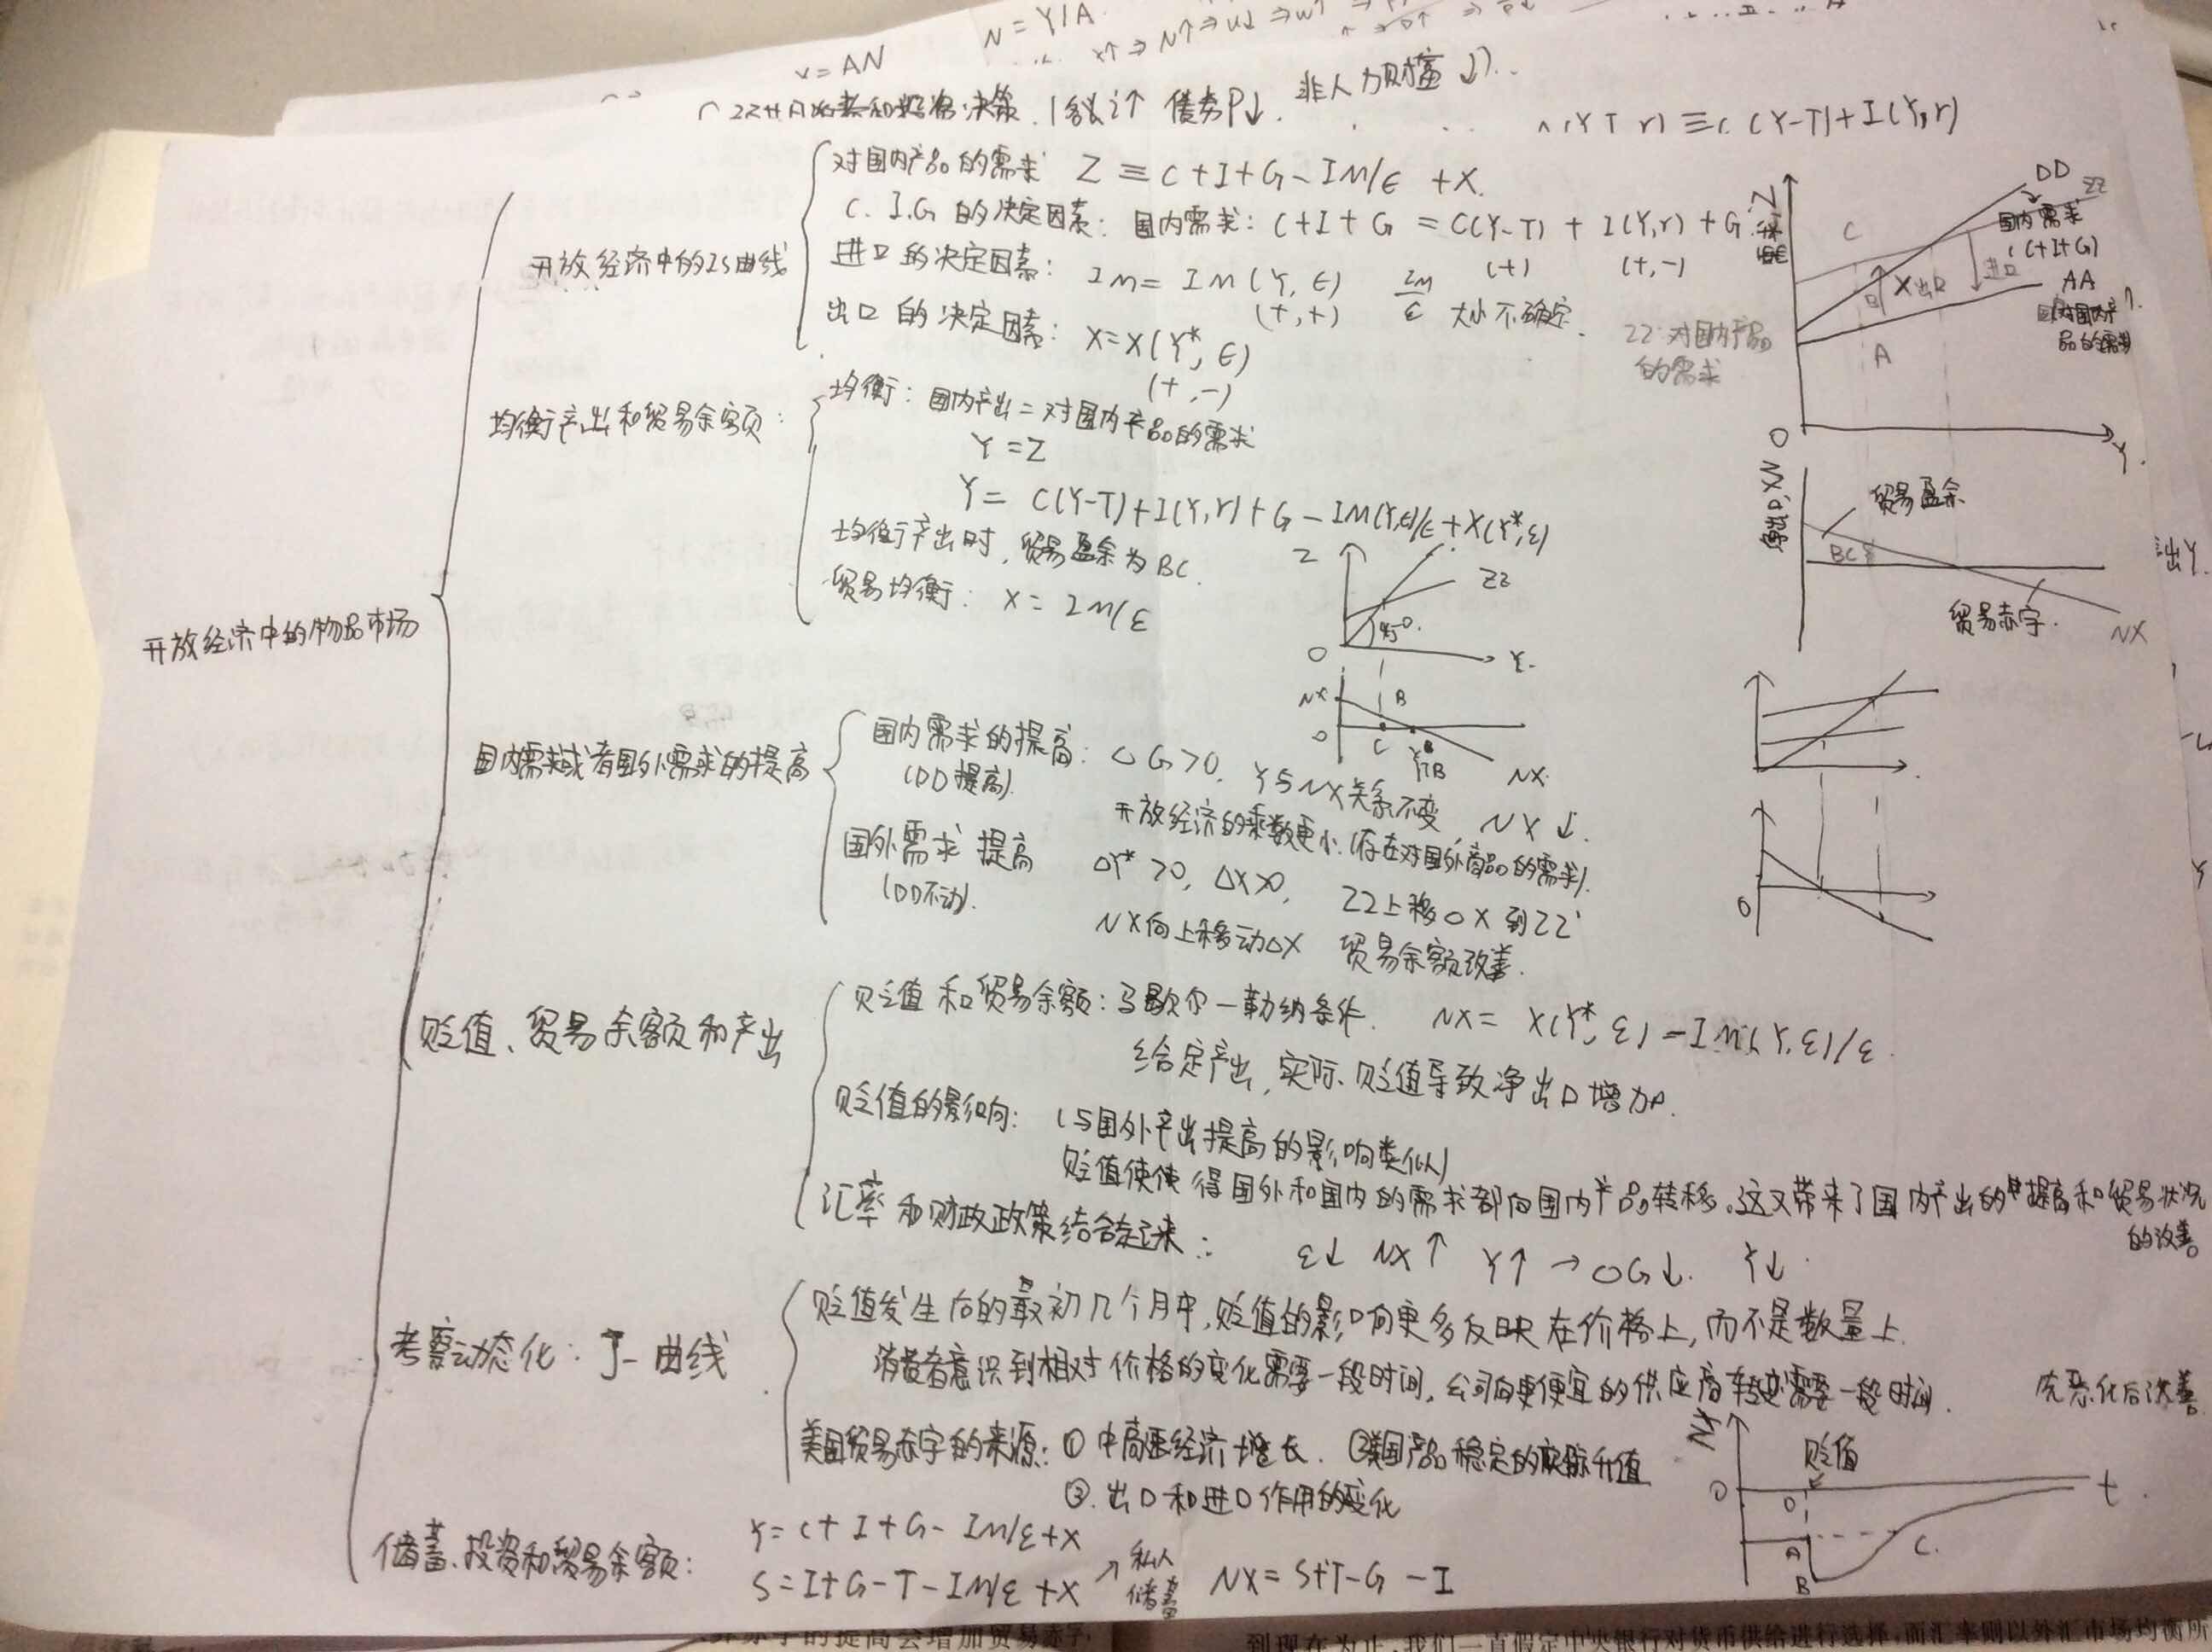 N = Y/A
Y = AN
N↑ ⇒ u↓ ⇒ w↑
债券P↓. 非人力财富↓
≡ C(Y-T)+I(Y,r)
开放经济中的物品市场
开放经济中的IS曲线
对国内产品的需求 Z ≡ C+I+G-IM/ε +X.
C. I.G 的决定因素: 国内需求: C+I+G = C(Y-T) + I(Y,r) + G
(+) (+,-)
进口的决定因素: IM = IM(Y, ε) IM/ε 大小不确定.
(+,+)
出口的决定因素: X=X(Y*, ε)
(+,-)
ZZ: 对国内产品
的需求
需求Z
DD
ZZ
国内需求
(C+I+G)
C
X出口
进口
AA
对国内产
品的需求
A
O
Y.
均衡产出和贸易余额:
均衡: 国内产出=对国内产品的需求
Y=Z
Y= C(Y-T)+I(Y,r)+G-IM(Y,ε)/ε+X(Y*,ε)
均衡产出时, 贸易盈余为BC.
贸易均衡: X=IM/ε
Z
ZZ
45°.
O
Y.
NX
B
O
C
YTB
NX
NX
贸易盈余
BC
贸易赤字.
NX
出Y.
国内需求或者国外需求的提高
国内需求的提高: △G>0. Y与NX关系不变, NX↓.
(DD提高).
开放经济的乘数更小.(存在对国外商品的需求).
国外需求提高 △Y*>0, △X>0, ZZ上移△X到ZZ'
(DD不动).
NX向上移动△X 贸易余额改善.
O
贬值、贸易余额和产出
贬值和贸易余额: 马歇尔-勒纳条件. NX= X(Y*, ε)-IM(Y,ε)/ε.
给定产出, 实际贬值导致净出口增加.
贬值的影响: (与国外产出提高的影响类似)
贬值使使得国外和国内的需求都向国内产品转移。这又带来了国内产出的提高和贸易状况
的改善。
汇率和财政政策结合起来: ε↓ NX↑ Y↑ → △G↓. Y↓.
考察动态化: J-曲线
贬值发生后的最初几个月中, 贬值的影响更多反映在价格上, 而不是数量上.
消费者意识到相对价格的变化需要一段时间, 公司向更便宜的供应商转变需要一段时间.
先恶化后改善
美国贸易赤字的来源: ①中高速经济增长. ②美国产品稳定的实际升值
③. 出口和进口作用的变化
NX
贬值
O
O
t.
A
B
C.
储蓄、投资和贸易余额:
Y=C+I+G-IM/ε+X
S=I+G-T-IM/ε+X ↗私人
储蓄
NX=S+T-G-I
到现在为止,我们一直假定中央银行对货币供给进行选择,而汇率则以外汇市场均衡所
的提高会增加贸易赤字,